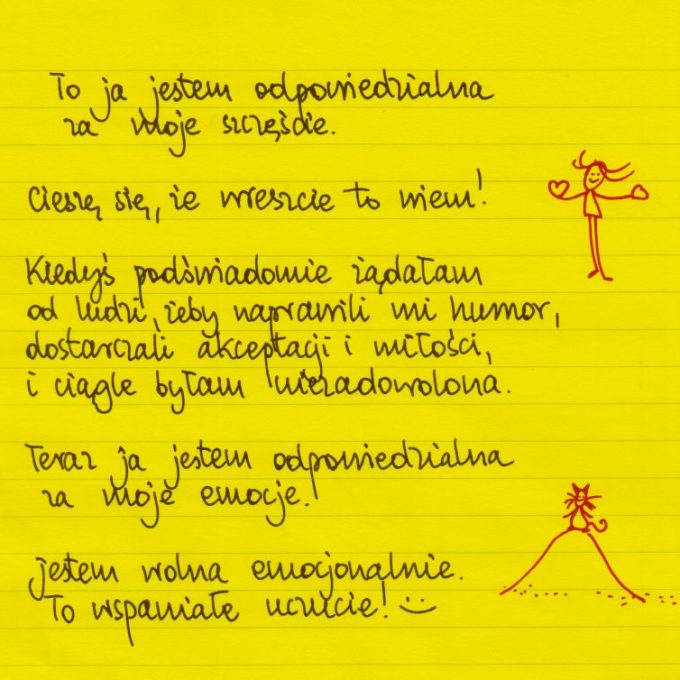 To ja jestem odpowiedzialna
za moje szczęście.
Cieszę się, że wreszcie to wiem!
Kiedyś podświadomie żądałam
od ludzi, żeby naprawili mi humor,
dostarczali akceptacji i miłości,
i ciągle byłam niezadowolona.
Teraz ja jestem odpowiedzialna
za moje emocje!
Jestem wolna emocjonalnie.
To wspaniałe uczucie! :-)